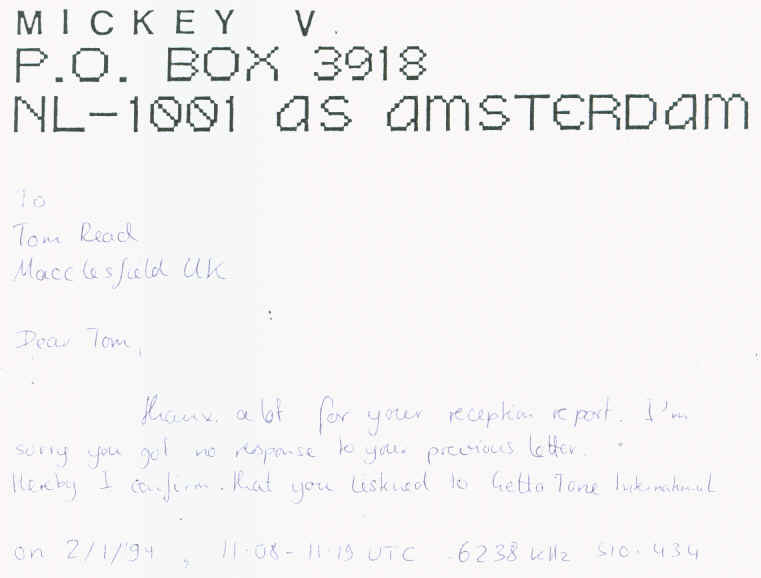 MICKEY V.
P.O. BOX 3918
NL-1001 as amsTERDam
To
Tom Read
Macclesfield UK
Dear Tom,
thanx. a lot for your reception report. I'm
sorry you got no response to your previous letter.
Hereby I confirm that you listened to Getto Tone International
on 2/1/'94, 11.08-11.19 UTC 6238 kHz SIO.434